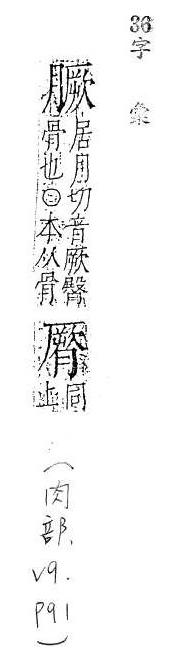 36字彙
𦠒
居月切音厥臀
骨也○本从骨
同
上
(肉部. V9. P91)